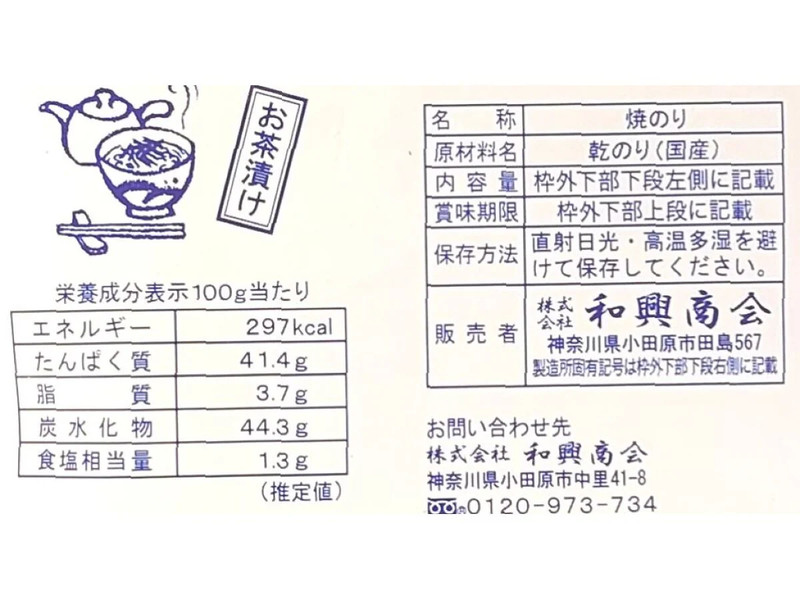 お茶漬け
栄養成分表示100g当たり
エネルギー 297kcal
たんぱく質 41.4g
脂質 3.7g
炭水化物 44.3g
食塩相当量 1.3g
(推定値)
名称 焼のり
原材料名 乾のり(国産)
内容量 枠外下部下段左側に記載
賞味期限 枠外下部上段に記載
保存方法 直射日光・高温多湿を避
けて保存してください。
販売者 株式会社 和興商会
神奈川県小田原市田島567
製造所固有記号は枠外下部下段右側に記載
お問い合わせ先
株式会社 和興商会
神奈川県小田原市中里41-8
0120-973-734